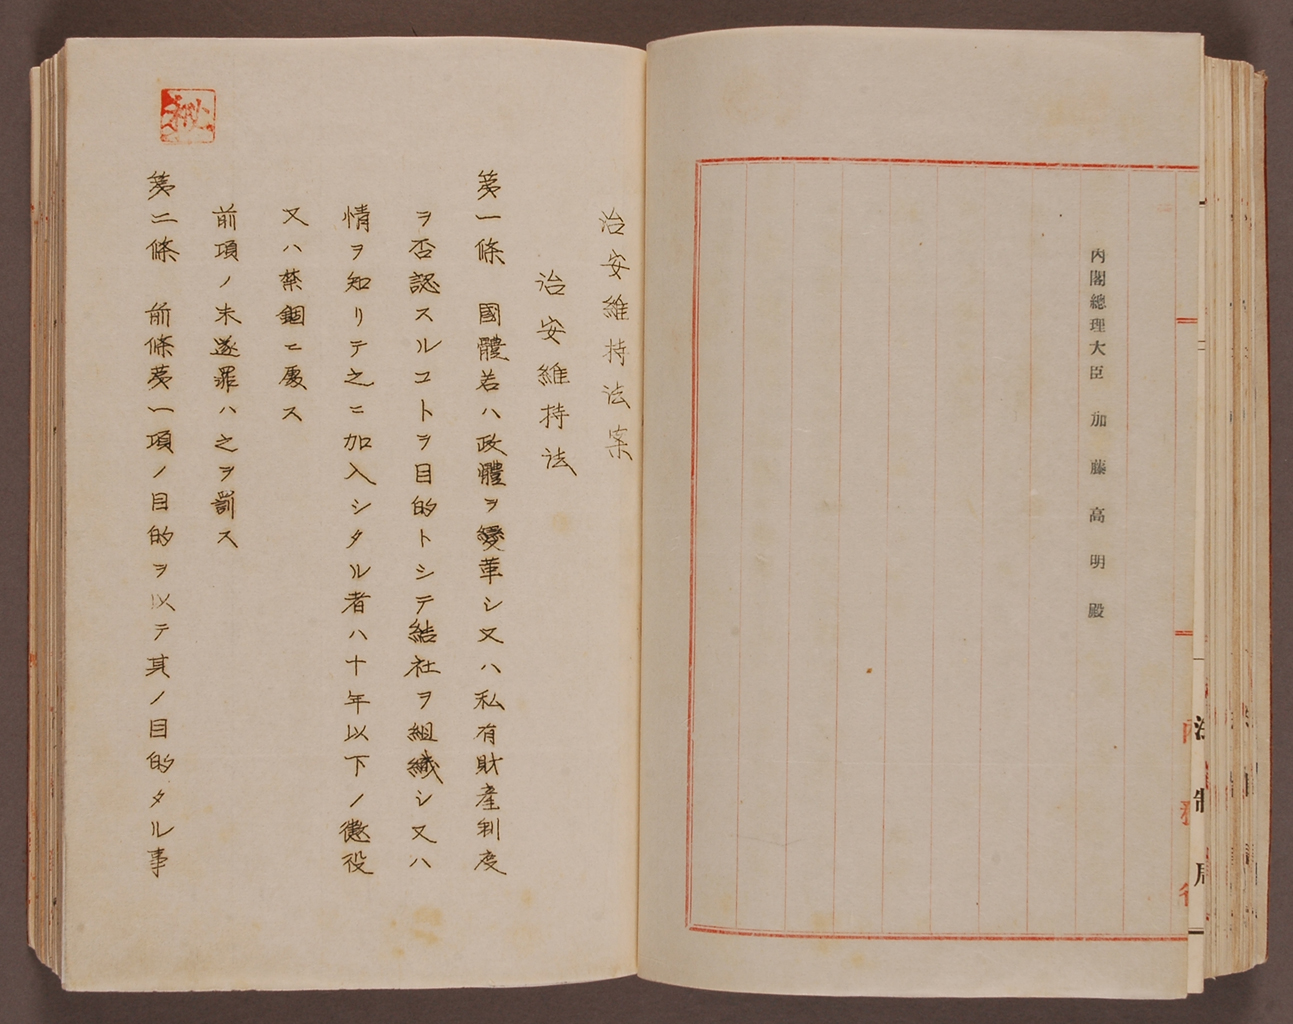 內閣總理大臣 加藤高明殿
法制局
秘
治安維持法案
治安維持法
第一條 國體若ハ政體ヲ變革シ又ハ私有財產制度
ヲ否認スルコトヲ目的トシテ結社ヲ組織シ又ハ
情ヲ知リテ之ニ加入シタル者ハ十年以下ノ懲役
又ハ禁錮ニ處ス
前項ノ未遂罪ハ之ヲ罰ス
第二條 前條第一項ノ目的ヲ以テ其ノ目的タル事